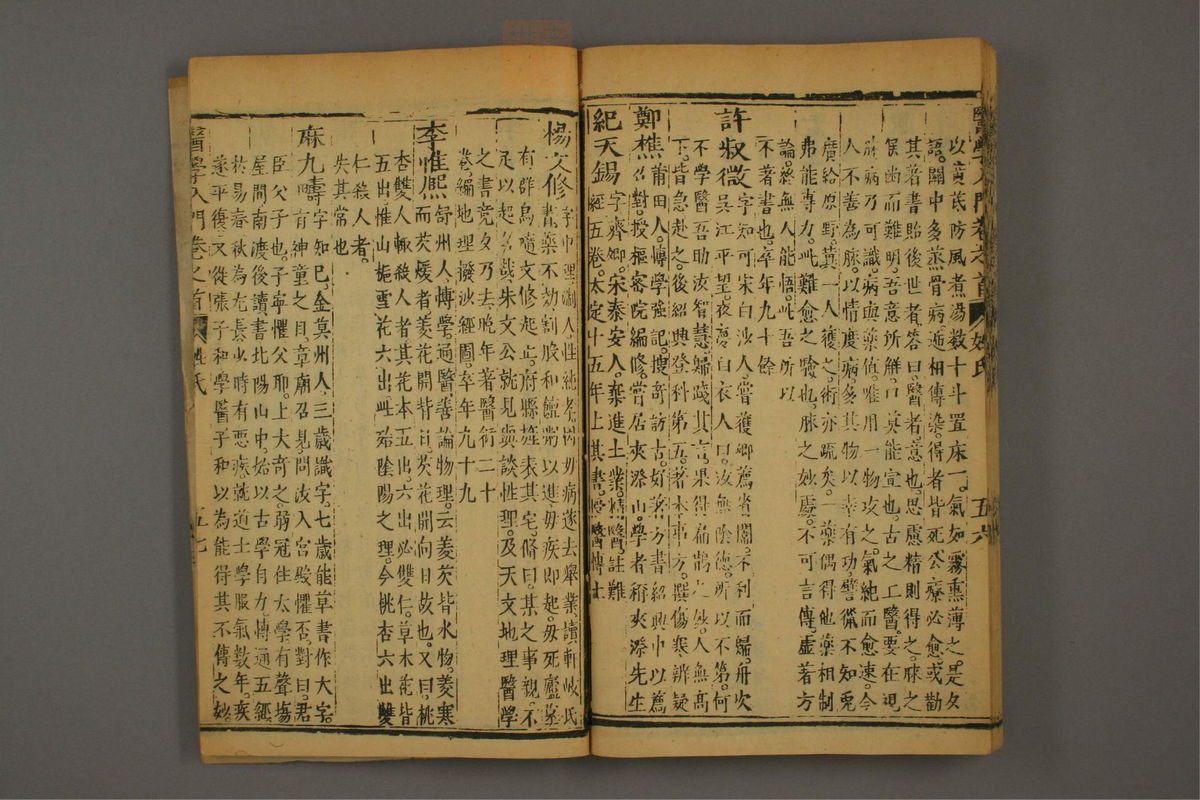 醫學入門卷之首 姓氏 五六
以黃芪防風煮湯數十斗置床下氣如霧熏薄之是夕
語關中多蒸骨病遞相傳染得者皆死公療必愈或勸
其著書貽後世者答曰醫者意也思慮精則得之脉之
候幽而難明吾意所解口莫能宣也古之上醫要在視
脉病乃可識病與藥值唯用一物攻之氣純而愈速今
人不善為脉以情度病多其物以幸有功譬獵不知兎
廣給原野冀一人獲之術亦疏矣一藥偶得他藥相制
弗能專力此難愈之驗也脉之妙處不可言傳虛著方
論終無人能悟此吾所以
不著書也卒年九十餘
許叔微 字知可宋白沙人嘗獲鄉薦省闈不利而歸舟次
吳江平望夜夢白衣人曰汝無陰德所以不第何
不學醫吾助汝智慧歸踐其言果得扁鵲之妙人無高
下皆急赴之後紹興登科第五著本事方撰傷寒辨疑
鄭樵 莆田人博學強記搜奇訪古好著方書紹興中以薦
召對授樞密院編修嘗居夾漈山學者稱夾漈先生
紀天錫 字齊卿宋泰安人棄進士業精醫註難
經五卷大定十五年上其書授醫博士
楊文修 字中理浙人性純孝因母病遂去舉業讀軒岐氏
書藥不効割股和饘粥以進母疾即起母死廬墓
有群烏隨文修起止府縣旌表其宅脩曰某之事親不
足以起名哉朱文公就見與談性理及天文地理醫學
之書竟夕乃去晚年著醫術二十
卷編地理撥沙經圖卒年九十九
李惟熙 舒州人博學通醫善論物理云菱芡皆水物菱寒
而芡煖者菱花開背日芡花開向日故也又曰桃
杏雙人輙殺人者其花本五出六出必雙仁草木花皆
五出惟山梔雪花六出此殆陰陽之理今桃杏六出雙
仁殺人者
失其常也
麻九疇 字知已金莫州人三歲識字七歲能草書作大字
有神童之目章廟召見問汝入宮殿懼否對曰君
臣父子也子寧懼父耶上大奇之弱冠往太學有聲塲
屋間南渡後讀書北陽山中始以古學自力博通五經
於易春秋為尤長少時有惡疾就道士學服氣數年疾
遂平復又從張子和學醫子和以為能得其不傳之妙
醫學入門卷之首 姓氏 五七